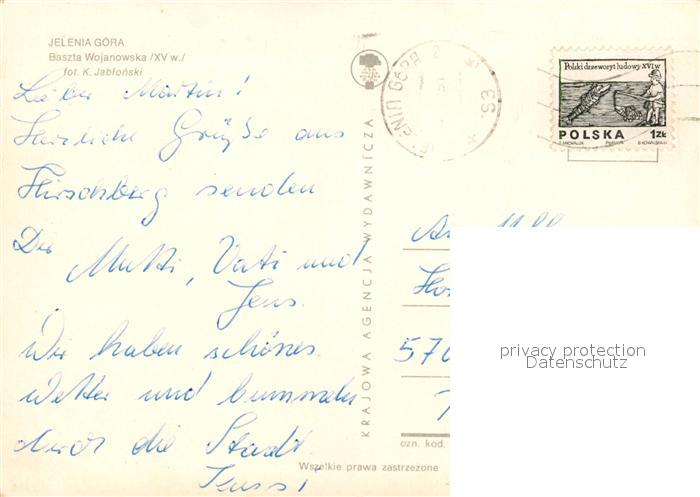 JELENIA GÓRA
Baszta Wojanowska /XV w./
fot. K. Jabłoński
Lieber Martin!
Herzliche Grüße aus
Hirschberg senden
Dir
Mutti, Vati und
Jens.
Wir haben schönes
Wetter und bummeln
durch die Stadt
KRAJOWA AGENCJA WYDAWNICZA
JELENIA GÓRA 2
Polski drzeworyt ludowy XVI w
POLSKA 1ZŁ
570
privacy protection
Datenschutz
ozn. kod.
Wszelkie prawa zastrzeżone